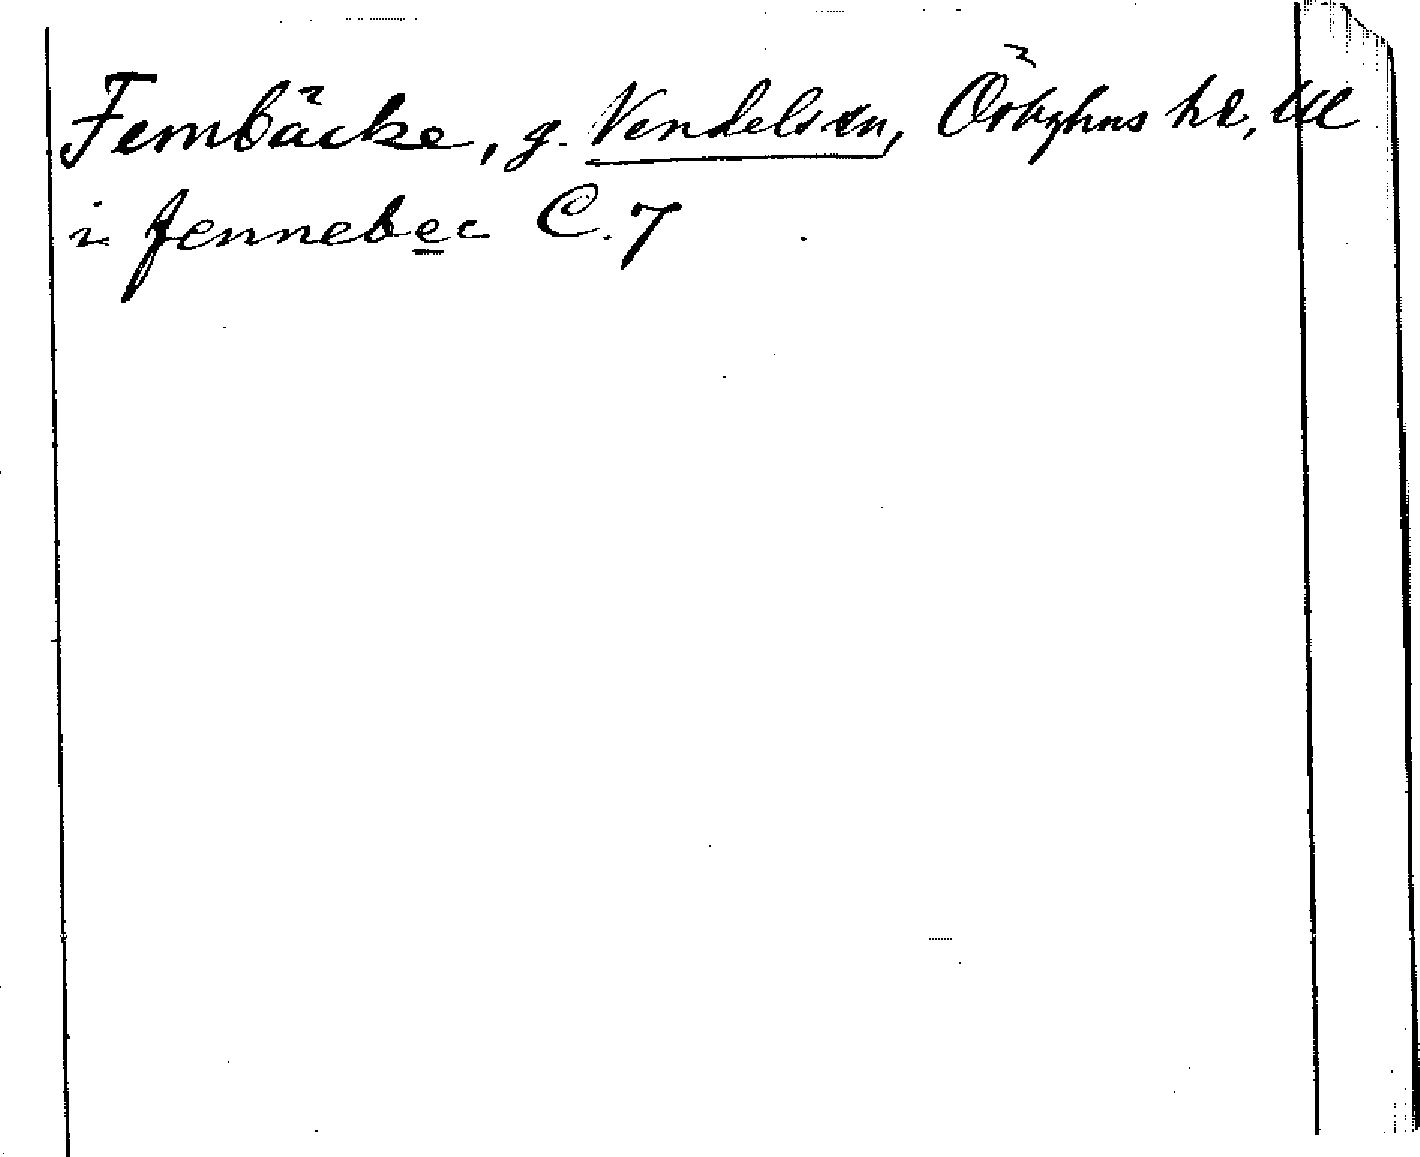 Fembäcke, g. Vendels sn, Örbyhus hd, Ul
i Jennebec C. 7